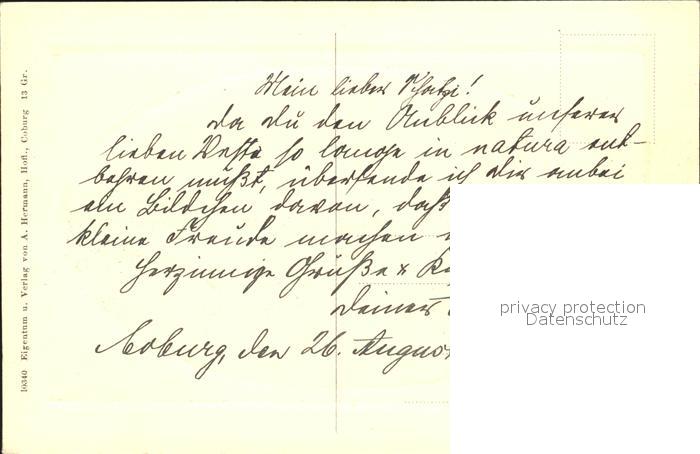 Mein lieber Schatz!
Da Du den Anblick unserer
lieben Veste so lange in natura ent-
behren mußt, übersende ich Dir anbei
ein Bildchen davon, daß
kleine Freude machen
Herzinnige Grüße &
Deiner
Coburg, den 26. August
10340 Eigentum u. Verlag von A. Hermann, Hofl., Coburg 13 Gr.
privacy protection
Datenschutz